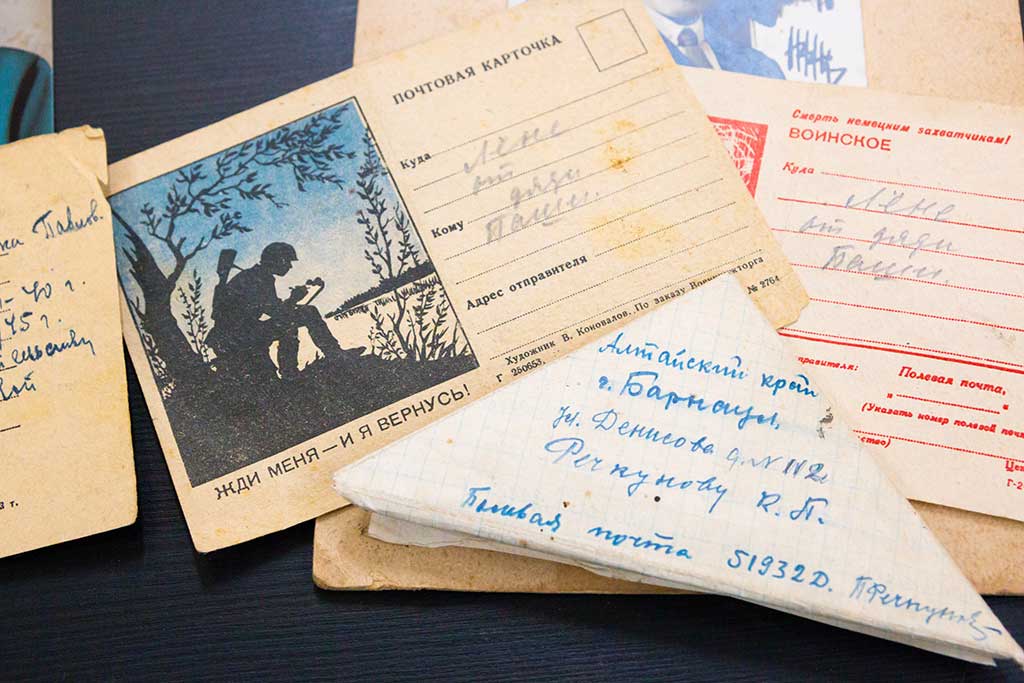 Павлов.
45 г.
ПОЧТОВАЯ КАРТОЧКА
Куда
Лёне
от
Кому
дяди
Паши.
Адрес отправителя
Художник В. Коновалов. По заказу
№ 2764
Г 250653.
ЖДИ МЕНЯ — И Я ВЕРНУСЬ!
Смерть немецким захватчикам!
ВОИНСКОЕ
Куда
Лёне
от дяди
Паши
правителя:
Полевая почта,
(Указать номер полевой поч
ство)
Г-2
Алтайский край
г. Барнаул,
Ул. Денисова д. N 112
Речкунову К. П.
Полевая почта 51932 D. ПРечкунов